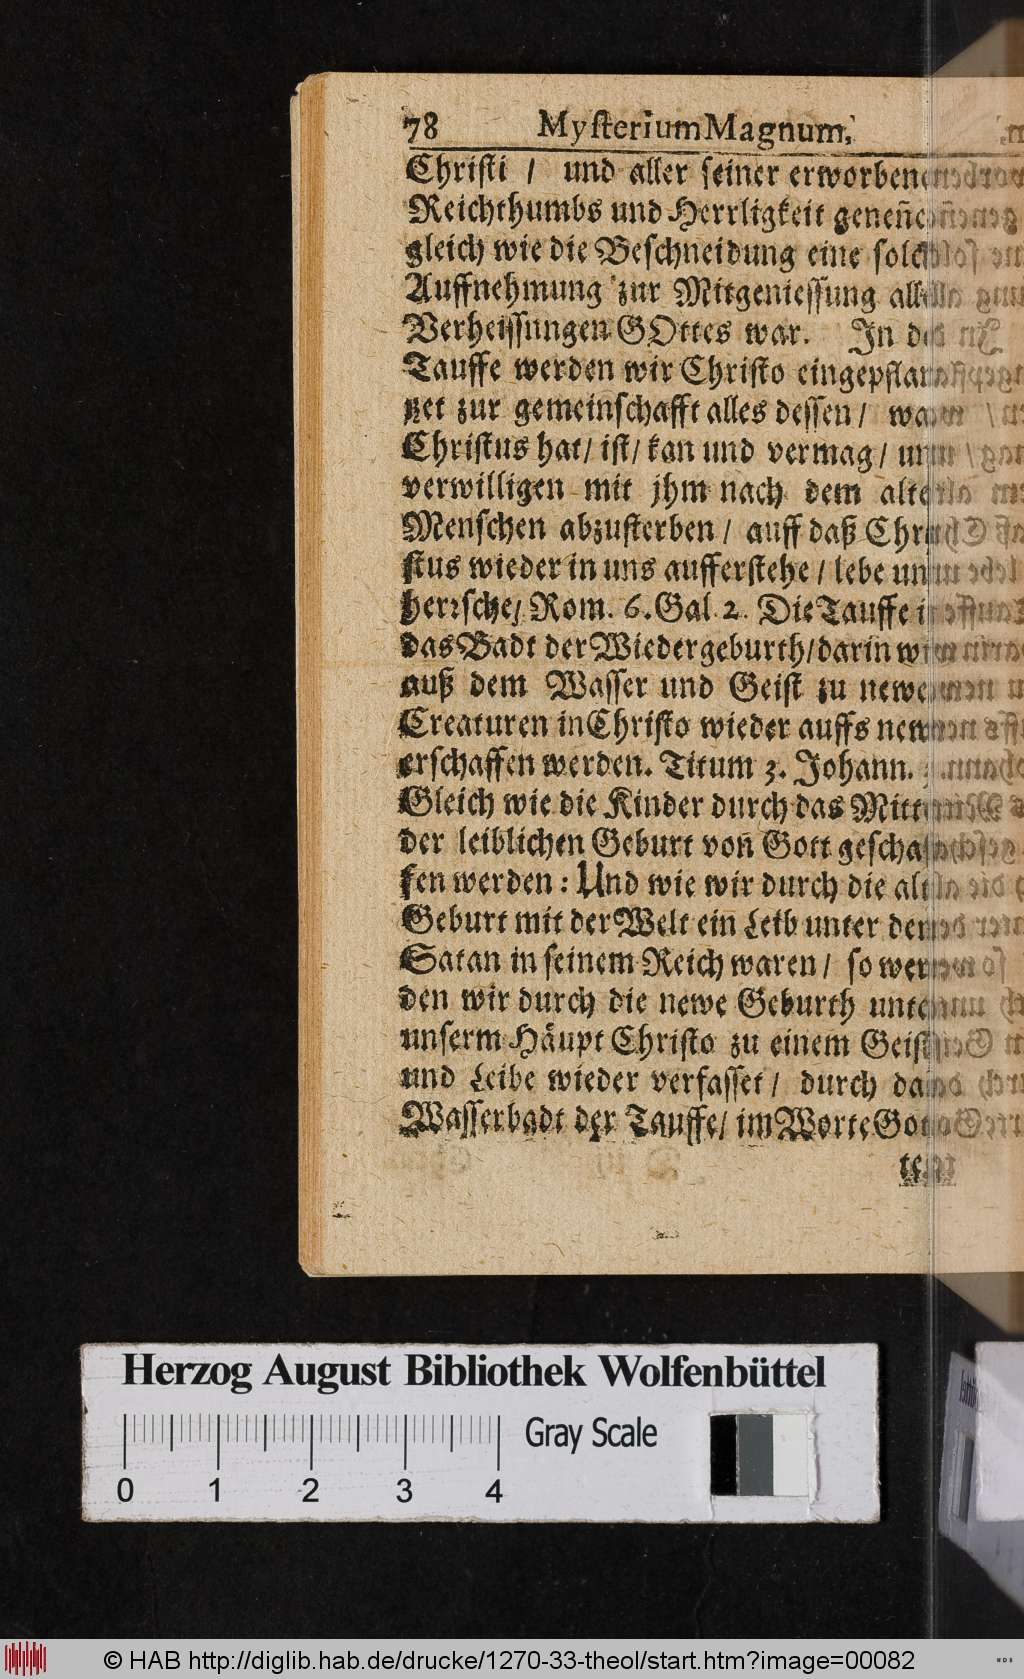 78 Mysterium Magnum,
Christi / und aller seiner erworbenen
Reichthumbs und Herrligkeit geneñe
gleich wie die Beschneidung eine solch
Auffnehmung zur Mitgeniessung alle
Verheissungen GOttes war. In de
Tauffe werden wir Christo eingepflan
tzet zur gemeinschafft alles dessen / wa
Christus hat / ist / kan und vermag / un
verwilligen mit jhm nach dem alte
Menschen abzusterben / auff daß Chri
stus wieder in uns aufferstehe / lebe un
herrsche / Rom. 6. Gal. 2. Die Tauffe i
das Badt der Wiedergeburth / darin wi
auß dem Wasser und Geist zu newe
Creaturen in Christo wieder auffs new
erschaffen werden. Titum 3. Johann.
Gleich wie die Kinder durch das Mitt
der leiblichen Geburt von Gott gescha
fen werden : Und wie wir durch die alt
Geburt mit der Welt ein Leib unter dem
Satan in seinem Reich waren / so wer
den wir durch die newe Geburth unte
unserm Häupt Christo zu einem Geist
und Leibe wieder verfasset / durch da
Wasserbadt der Tauffe / im Worte Got
tes
Herzog August Bibliothek Wolfenbüttel
Gray Scale
0 1 2 3 4
© HAB http://diglib.hab.de/drucke/1270-33-theol/start.htm?image=00082